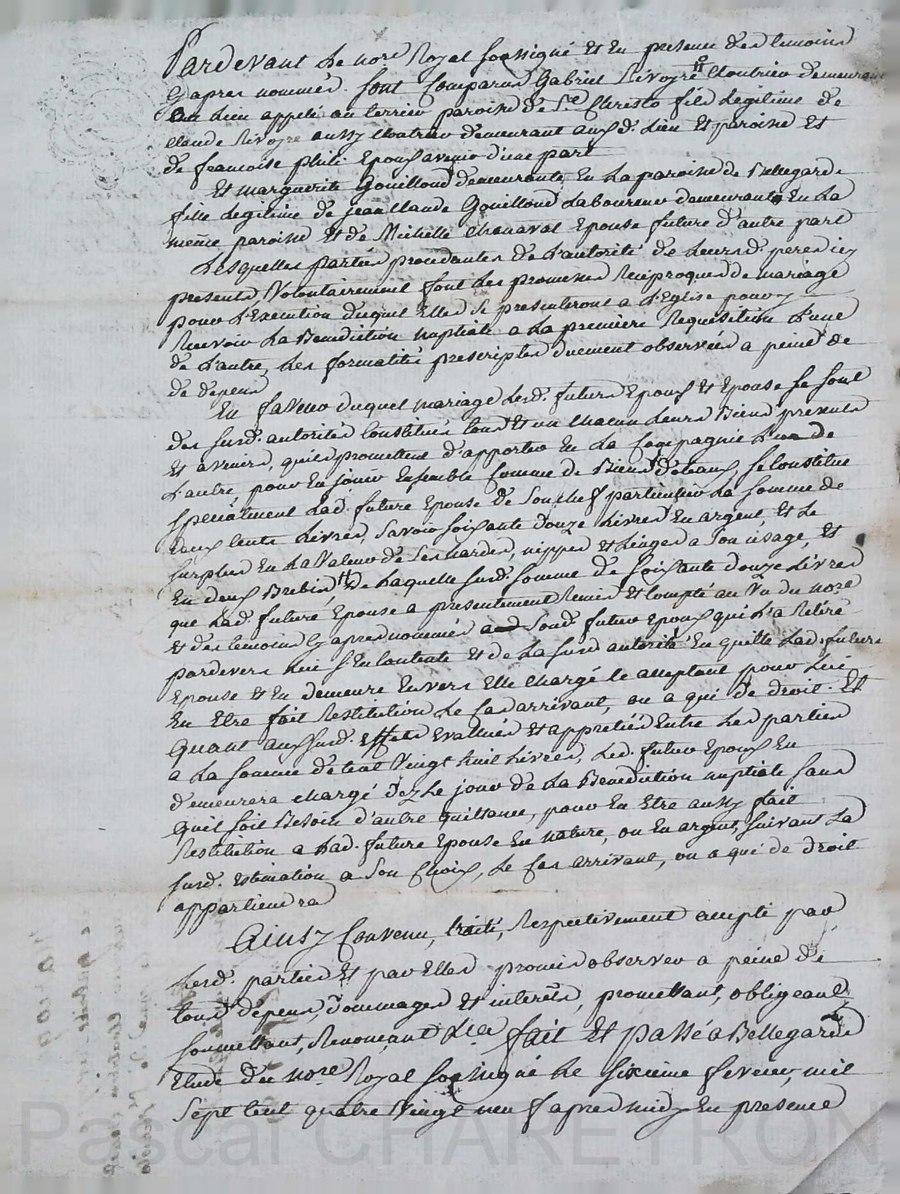 Pardevant Le nore Royal soussigné Et En presence des temoins
cy apres nommés. sont Comparus Gabriel Rivoyre Cloutrier demeurant
au Lieu appellé au terrein paroisse de St Christo fils Legitime de
Claude Rivoyre aussy Cloutrier demeurant auxd. Lieu Et paroisse Et
de francoise phili Epoux avenir d'une part
Et marguerite Gouilloud demeurante, En La paroisse de Bellegarde
fille Legitime de jean Claude Gouilloud Laboureur demeurant En La
même paroisse Et de Michelle Chouaval Epouse future d'autre part
Lesquelles parties procedantes de L'autorité de Leursd. peres icy
presents Volontairement font Les promesses Reciproques de mariage
pour L'Execution duquel Elles se presenteront a L'Eglise pour y
Recevoir La Benediction nuptiale a La premiere Requisition L'une
de L'autre, Les formalités prescriptes duement observées a peine de
de depens
En faveur duquel mariage Lesd. futurs Epoux Et Epouse se sont
des susd. autorités Constitués tous Et un chacun Leurs Biens presents
Et avenirs, quils promettent d'apporter En La Compagnie L'un de
L'autre, pour En jouir Ensemble Comme de Biens dotaux, se Constitue
specialement Lad. future Epouse de son chef particulier La somme de
deux Cents Livres, savoir soixante douze Livres En argent, Et Le
surplus En La Valeur de ses hardes, nippes Et Linges a son usage, Et
En deux Brebis, De Laquelle susd. somme de soixante douze Livres
que Lad. future Epouse a presentement Remis Et Compté au Vu du nore
Et des temoins cy apres nommés aud. sond. futur Epoux qui L'a Retiré
pardevers Lui s'En Contente Et de La susd. autorité En quitte Lad. future
Epouse Et En demeure Envers Elle chargé Ce acceptant pour Lui
En Etre fait Restitution Le Cas arrivant, ou a qui de droit. Et
Quant aux susd. Effets Evalués Et appretiés Entre Les parties
a La somme de Cent Vingt huit Livres, Led. futur Epoux En
demeurera chargé dez Le jour de La Benediction nuptiale sans
quil soit Besoin d'autre quittance, pour En Etre aussy fait
Restitution a Lad. future Epouse En nature, ou En argent, suivant La
susd. Estimation a son Choix, Le Cas arrivant, ou a qui de droit
appartiendra
Ainsy Convenu, traité, Respectivement accepté par
Lesd. parties Et par Elles promis observer a peine de
tous depens, dommages Et interêts, promettant, obligeant,
soumettant, Renonçant &ca fait Et passé a Bellegarde
Etude du nore Royal soussigné Le sixieme fevrier, mil
sept Cent quatre Vingt neuf apres midy En presence
Pascal CHAREYRON